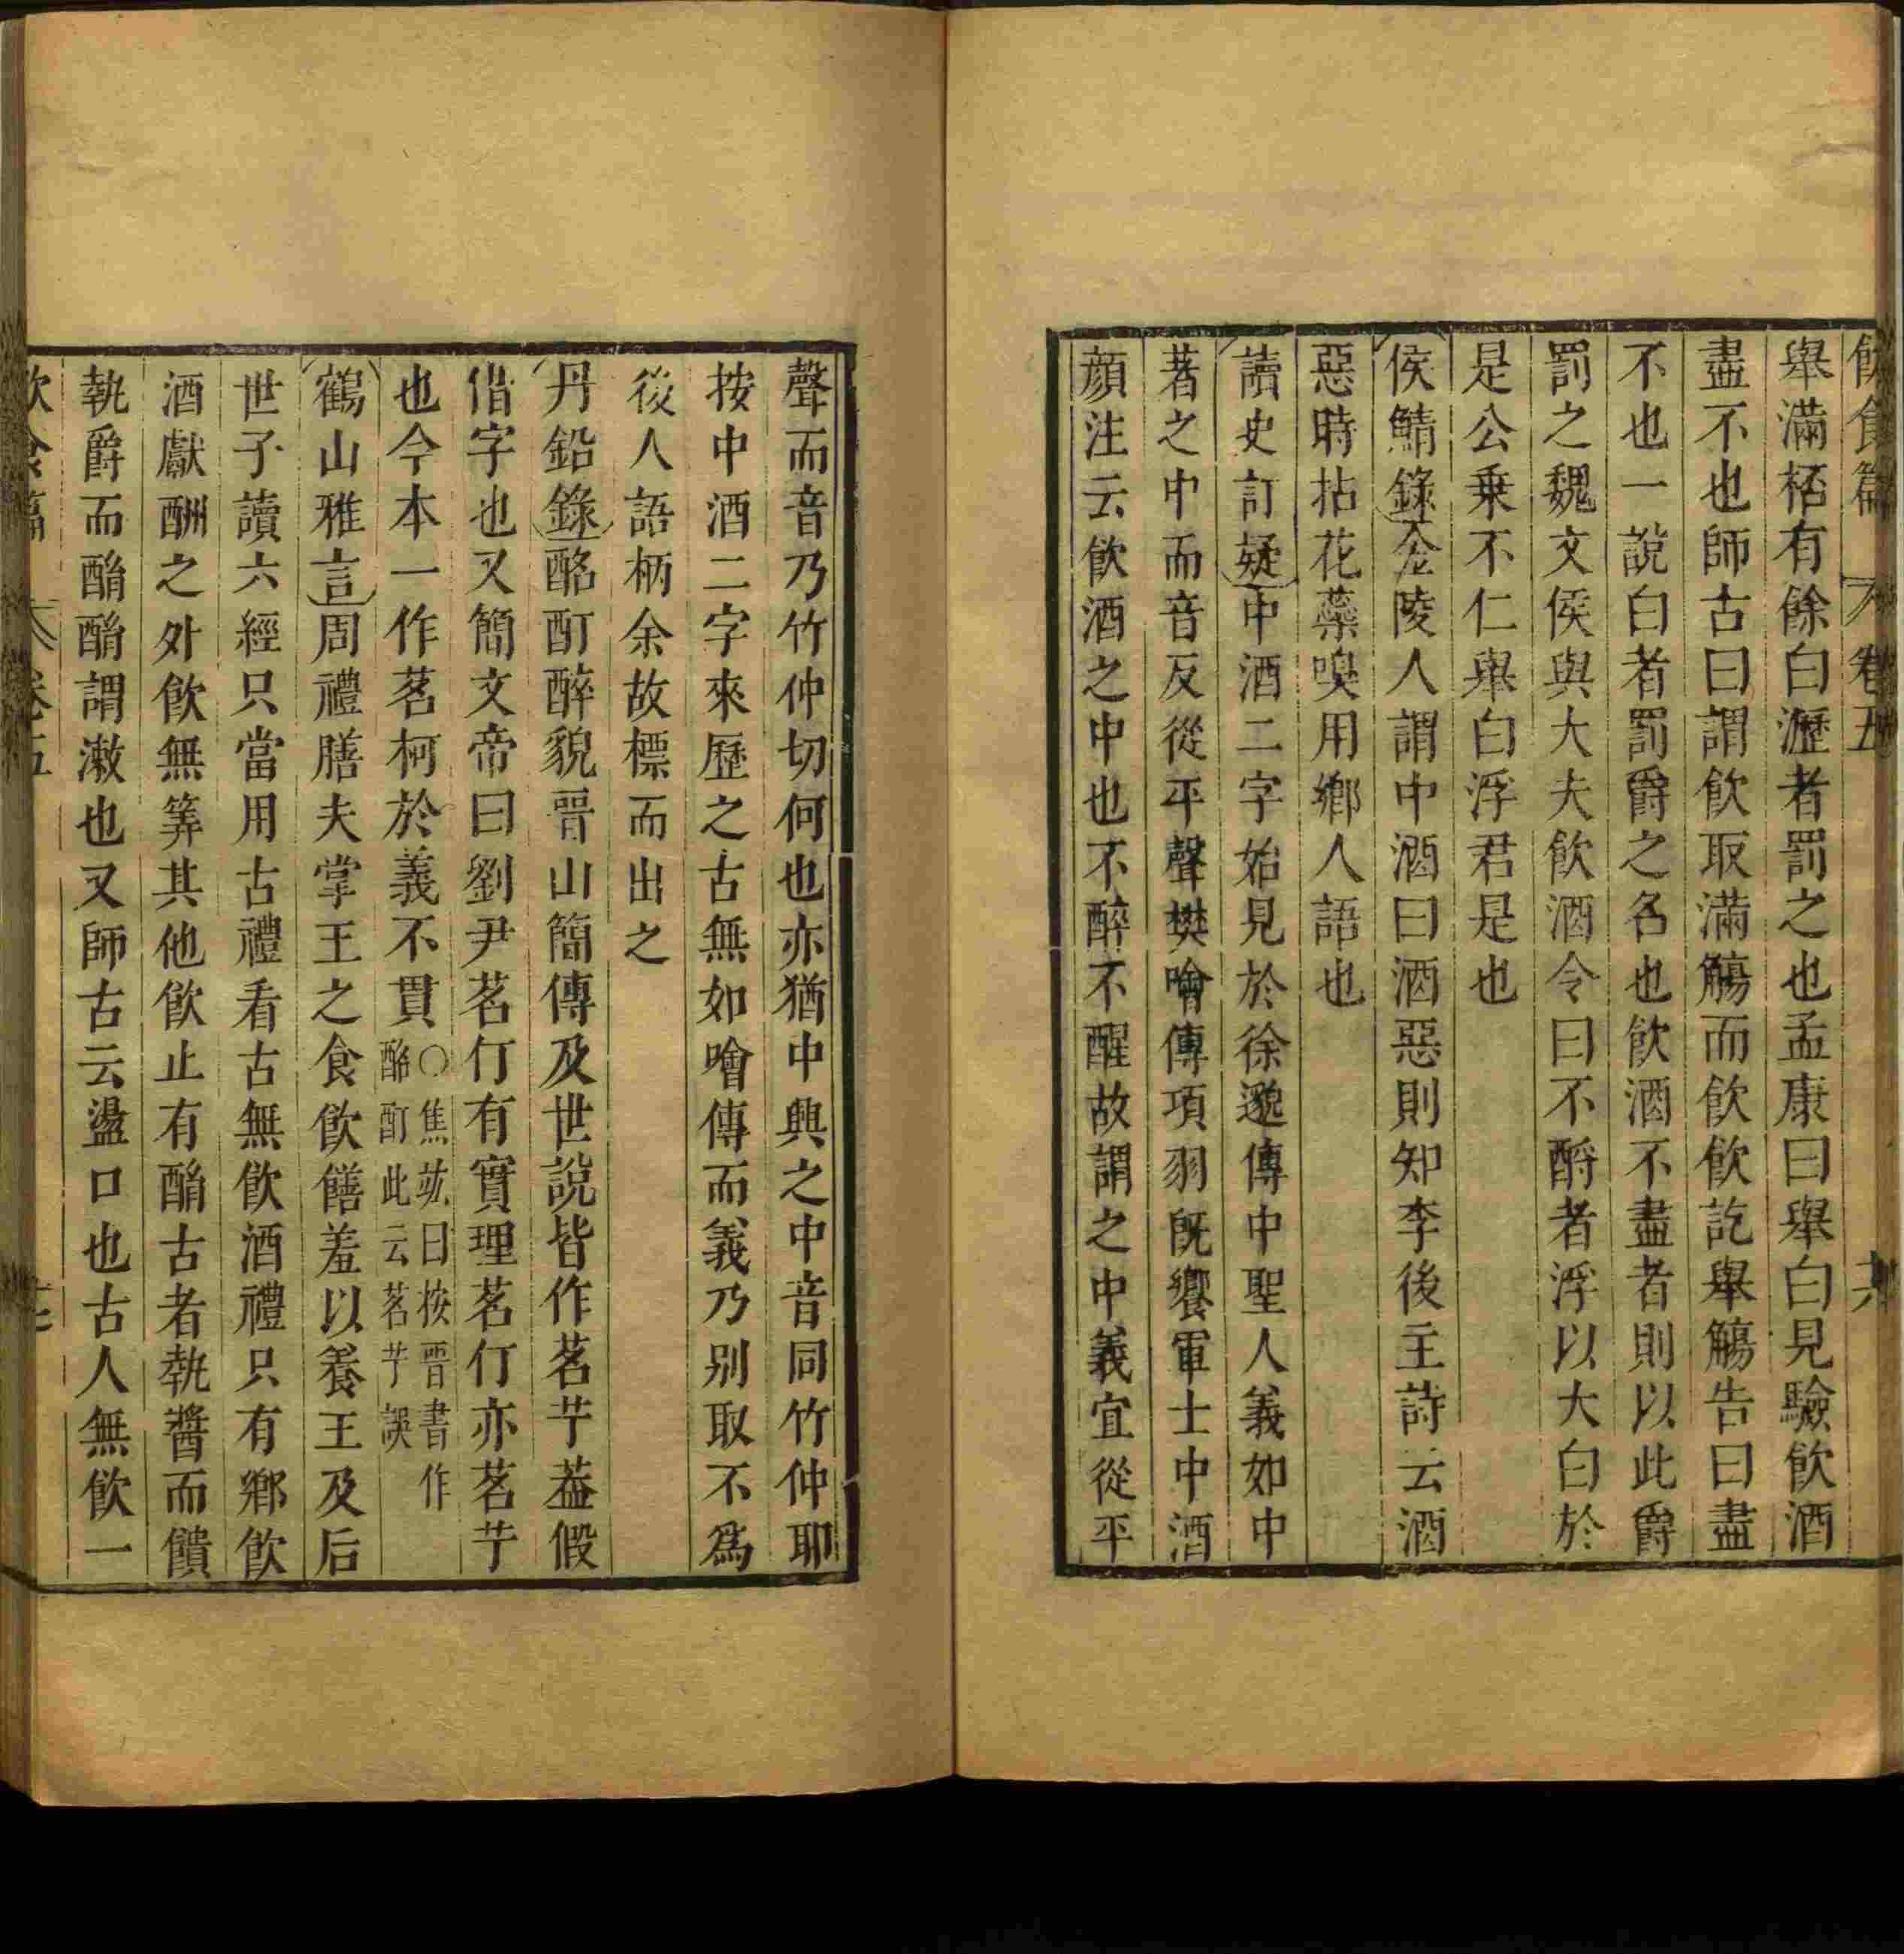 飲食篇 卷五 六
舉滿桮有餘白瀝者罰之也孟康曰舉白見驗飲酒
盡不也師古曰謂飲取滿觴而飲飲訖舉觴告曰盡
不也一說白者罰爵之名也飲酒不盡者則以此爵
罰之魏文侯與大夫飲酒令曰不釂者浮以大白於
是公乗不仁舉白浮君是也
侯鯖錄金陵人謂中酒曰酒惡則知李後主詩云酒
惡時拈花蘂嗅用鄉人語也
讀史訂疑中酒二字始見於徐邈傳中聖人義如中
著之中而音反從平聲樊噲傳項羽旣饗軍士中酒
顔注云飲酒之中也不醉不醒故謂之中義宜從平
聲而音乃竹仲切何也亦猶中興之中音同竹仲耶
按中酒二字來歷之古無如噲傳而義乃別取不爲
後人語柄余故標而出之
丹鉛錄酩酊醉貌晋山簡傳及世說皆作茗艼葢假
借字也又簡文帝曰劉尹茗仃有實理茗仃亦茗艼
也今本一作茗柯於義不貫○焦竑曰按晋書作
酩酊此云茗艼誤
鶴山雅言周禮膳夫掌王之食飲饍羞以養王及后
世子讀六經只當用古禮看古無飲酒禮只有鄉飲
酒獻酬之外飲無筭其他飲止有酳古者執醬而饋
執爵而酳酳謂漱也又師古云盪口也古人無飲一